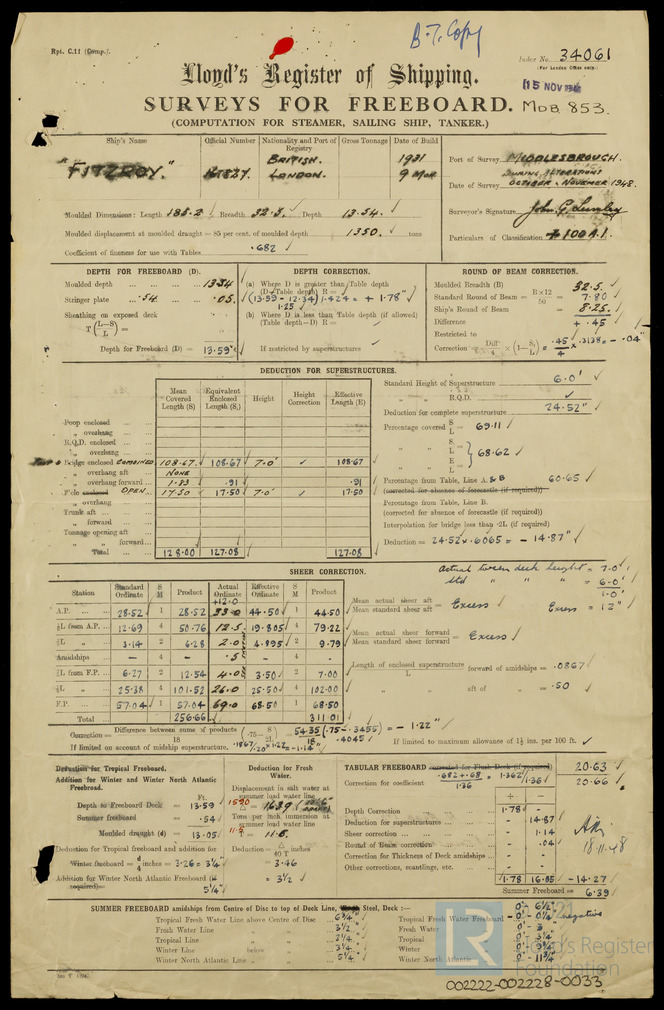 Rpt. C.11 (Comp.)
B.T. Copy
Index No. 34061
(For London Office only.)
Lloyd's Register of Shipping.
15 NOV 1948
SURVEYS FOR FREEBOARD. MDB 853.
(COMPUTATION FOR STEAMER, SAILING SHIP, TANKER.)
Ship's Name Official Number Nationality and Port of Registry Gross Tonnage Date of Build
"FITZROY." BRITISH. LONDON. 1931 9 MOR
Port of Survey MIDDLESBROUGH.
DURING ALTERATIONS
Date of Survey OCTOBER - NOVEMBER 1948.
Surveyor's Signature
Particulars of Classification +100A1.
Moulded Dimensions: Length 185.2 Breadth 32.5 Depth 13.54
Moulded displacement at moulded draught = 85 per cent. of moulded depth 1350. tons
Coefficient of fineness for use with Tables .682
DEPTH FOR FREEBOARD (D).
Moulded depth 13.54
Stringer plate .54 .05
Sheathing on exposed deck
T(L-S/L) =
Depth for Freeboard (D) = 13.59
DEPTH CORRECTION.
(a) Where D is greater than Table depth
(D - Table depth) R =
(13.59 - 12.34) 1.424 = + 1.78"
1.25
(b) Where D is less than Table depth (if allowed)
(Table depth - D) R =
If restricted by superstructures
ROUND OF BEAM CORRECTION.
Moulded Breadth (B) 32.5
Standard Round of Beam = B×12/50 = 7.80
Ship's Round of Beam = 8.25
Difference + .45
Restricted to
Correction = Diff/4 × (1 - S/L) = .45/4 × .3138 = - .04
DEDUCTION FOR SUPERSTRUCTURES.
Mean Covered Length (S) Equivalent Enclosed Length (S₁) Height Height Correction Effective Length (E)
Poop enclosed
" overhang
R.Q.D. enclosed
" overhang
Bridge enclosed COMBINED 108.67 108.67 7.0' 108.67
" overhang aft NONE
" overhang forward 1.83 .91 .91
F'cle enclosed OPEN 17.50 17.50 7.0' 17.50
" overhang
Trunk aft
" forward
Tonnage opening aft
" " forward
Total 128.00 127.08 127.08
Standard Height of Superstructure 6.0'
" " R.Q.D.
Deduction for complete superstructure 24.52"
Percentage covered S/L = 69.11
" " S₁/L = E/L = 68.62
Percentage from Table, Line A & B 60.65
(corrected for absence of forecastle (if required))
Percentage from Table, Line B.
(corrected for absence of forecastle (if required))
Interpolation for bridge less than .2L (if required)
Deduction = 24.52 × .6065 = - 14.87"
SHEER CORRECTION.
Actual tween deck height = 7.0'
Std " " " = 6.0'
1.0'
Station Standard Ordinate S M Product Actual Ordinate Effective Ordinate S M Product
+12.0
A.P. 28.52 1 28.52 33.0 44.50 1 44.50
⅙L from A.P. 12.69 4 50.76 12.5 19.805 4 79.22
⅓L " 3.14 2 6.28 2.0 4.895 2 9.79
Amidships - 4 - .5 - 4 -
⅓L from F.P. 6.27 2 12.54 4.0 3.50 2 7.00
⅙L " 25.38 4 101.52 26.0 25.50 4 102.00
F.P. 57.04 1 57.04 69.0 68.50 1 68.50
Total 256.66 311.01
Mean actual sheer aft / Mean standard sheer aft = Excess Excess = 12"
Mean actual sheer forward / Mean standard sheer forward = Excess
Length of enclosed superstructure / L forward of amidships = .0867
" " aft of " = .50
Correction = Difference between sums of products / 18 (.75 - S/2L) = 54.35/18 (.75 - .3455) = - 1.22"
.4045
If limited on account of midship superstructure. .1867/.20 × 1.22 = -1.14"
If limited to maximum allowance of 1½ ins. per 100 ft.
Deduction for Tropical Freeboard.
Addition for Winter and Winter North Atlantic Freeboard.
Ft.
Depth to Freeboard Deck = 13.59
Summer freeboard = .54
Moulded draught (d) = 13.05
Deduction for Tropical freeboard and addition for
Winter freeboard = d/4 inches = 3.26 = 3¼"
Addition for Winter North Atlantic Freeboard (if required) =
5¼"
Deduction for Fresh Water.
Displacement in salt water at summer load water line
1590
Δ = 1639
Tons per inch immersion at summer load water line
11.5
11.6
Deduction = Δ/40 T inches
= 3.46
= 3½"
TABULAR FREEBOARD corrected for Flush Deck (if required) 20.63
Correction for coefficient .682 + .68 / 1.36 = 1.362/1.36 20.66
+ -
Depth Correction 1.78 -
Deduction for superstructures - 14.87
Sheer correction - 1.14
Round of Beam correction - .04
Correction for Thickness of Deck amidships - -
Other corrections, scantlings, etc. - -
1.78 16.05 - 14.27
Summer Freeboard = 6.39
18.11.48
SUMMER FREEBOARD amidships from Centre of Disc to top of Deck Line, Steel, Deck :—
Tropical Fresh Water Line above Centre of Disc 6¾"
Fresh Water Line " " 3½"
Tropical Line " " 3¼"
Winter Line below " 3¼"
Winter North Atlantic Line " " 5¼"
0' - 6½"
Tropical Fresh Water Freeboard - 0' - 0¼" negative
Fresh Water " 0' - 3
Tropical " 0' - 3¼"
Winter " 0' - 9¾"
Winter North Atlantic " 0' - 11¾"
LR
Lloyd's Register
Foundation
002222-002228-0033